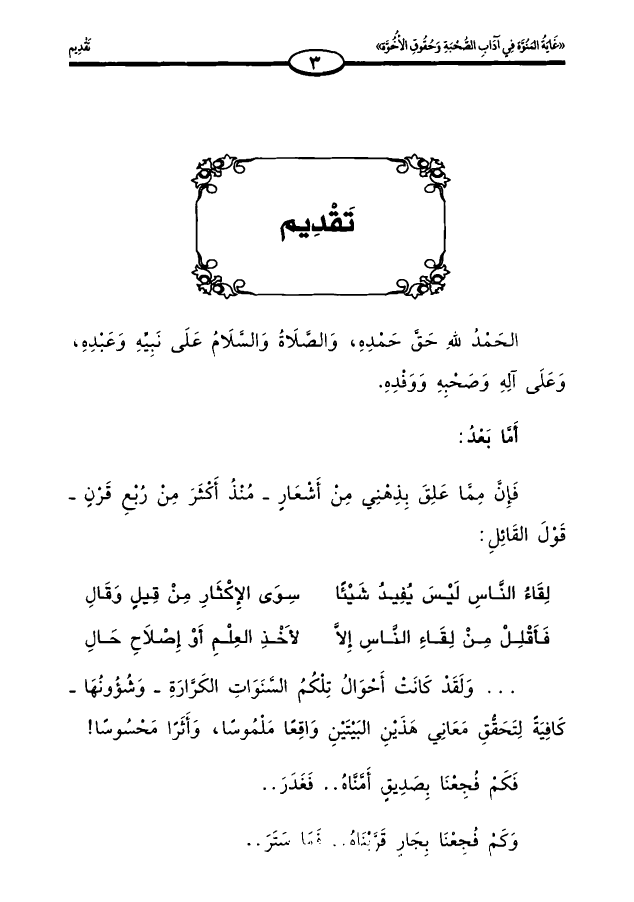 «غَايَةُ المَنُوَّه فِي آدَابِ الصُّحْبَةِ وَحُقُوقِ الأُخُوَّة»
تَقْدِيم
٣
تَقْدِيم
الحَمْدُ للهِ حَقَّ حَمْدِهِ، وَالصَّلَاةُ وَالسَّلَامُ عَلَى نَبِيِّهِ وَعَبْدِهِ،
وَعَلَى آلِهِ وَصَحْبِهِ وَوَفْدِهِ.
أَمَّا بَعْدُ:
فَإِنَّ مِمَّا عَلِقَ بِذِهْنِي مِنْ أَشْعَارٍ ـ مُنْذُ أَكْثَرَ مِنْ رُبْعِ قَرْنٍ ـ
قَوْلَ القَائِلِ:
لِقَاءُ النَّاسِ لَيْسَ يُفِيدُ شَيْئًا سِوَى الإِكْثَارِ مِنْ قِيلٍ وَقَالِ
فَأَقْلِلْ مِنْ لِقَاءِ النَّاسِ إِلاَّ لأَخْذِ العِلْمِ أَوْ إِصْلَاحِ حَالِ
... وَلَقَدْ كَانَتْ أَحْوَالُ تِلْكُمُ السَّنَوَاتِ الكَرَّارَةِ ـ وَشُؤُونُهَا ـ
كَافِيَةً لِتَحَقُّقِ مَعَانِي هَذَيْنِ البَيْتَيْنِ وَاقِعًا مَلْمُوسًا، وَأَثَرًا مَحْسُوسًا!
فَكَمْ فُجِعْنَا بِصَدِيقٍ أَمَّنَّاهُ.. فَغَدَرَ..
وَكَمْ فُجِعْنَا بِجَارٍ قَرَّبْنَاهُ.. فَمَا سَتَرَ..